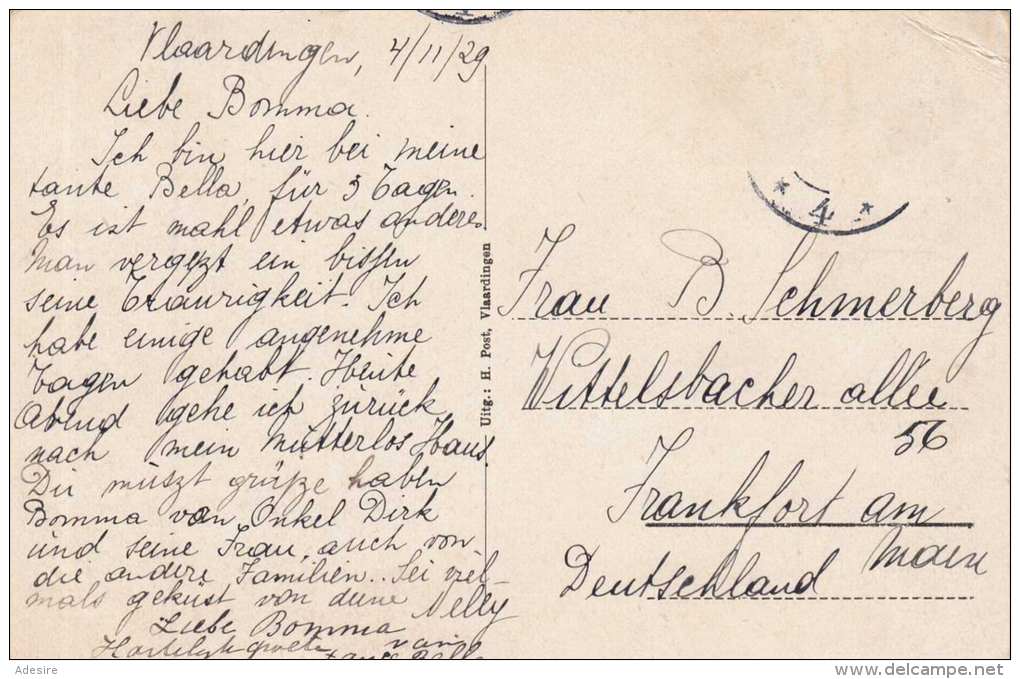 Vlaardingen, 4/11/29
Liebe Bomma.
Ich bin hier bei meine
tante Bella, für 3 Tagen.
Es ist mahl etwas andere.
Man vergeszt ein bissen
seine Traurigkeit. Ich
habe einige angenehme
Tagen gehabt. Heute
Abend gehe ich zurück
nach mein mutterlos Haus.
Du muszt grüsze haben
Bomma van Onkel Dirk
und seine Frau, auch von
die andere Familien.. Sei viel-
mals geküst von deine Nelly
Liebe Bomma
van
Tante Bella
Uitg.: H. Post, Vlaardingen
* 4 *
Frau B. Schmerberg
Wittelsbacher allee
56
Frankfort am
Main
Deutschland
Adesire
www.delcampe.net